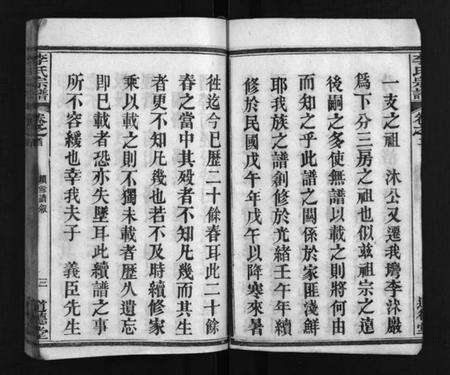 李氏宗譜
卷之首
一支之祖　沐公又遷我灣李沐巖
為下分三房之祖也似茲祖宗之遠
後嗣之多使無譜以載之則將何由
而知之乎此譜之關係於家匪淺鮮
耶我族之譜創修於光緒壬午年續
修於民國戊午年戊午以降寒來暑
徃迄今已歷二十餘春耳此二十餘
春之當中其歿者不知凡幾而其生
者更不知凡幾也若不及時續修家
乘以載之則不獨未載者歷久遺忘
即已載者恐亦失墜耳此續譜之事
所不容緩也幸我夫子　義臣先生
李氏宗譜
卷之首
續修譜敘
三
道德堂